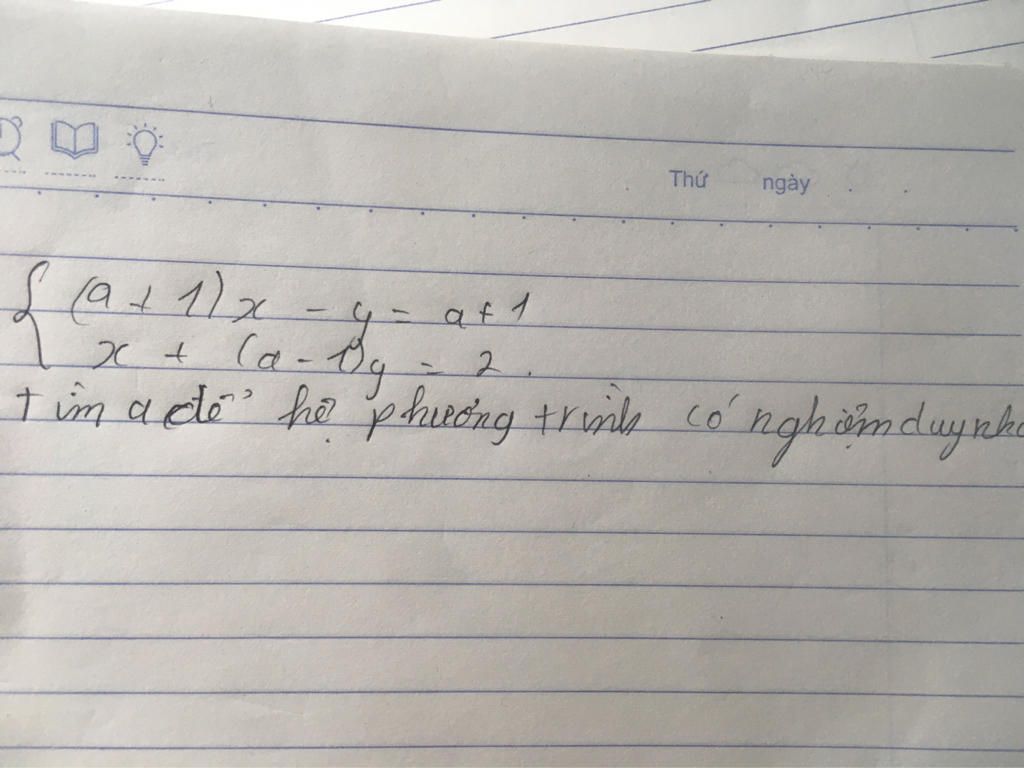 Thứ ngày
(a + 1)x - y = a + 1
x + (a - 1)y = 2.
tìm a để hệ phương trình có nghiệm duy